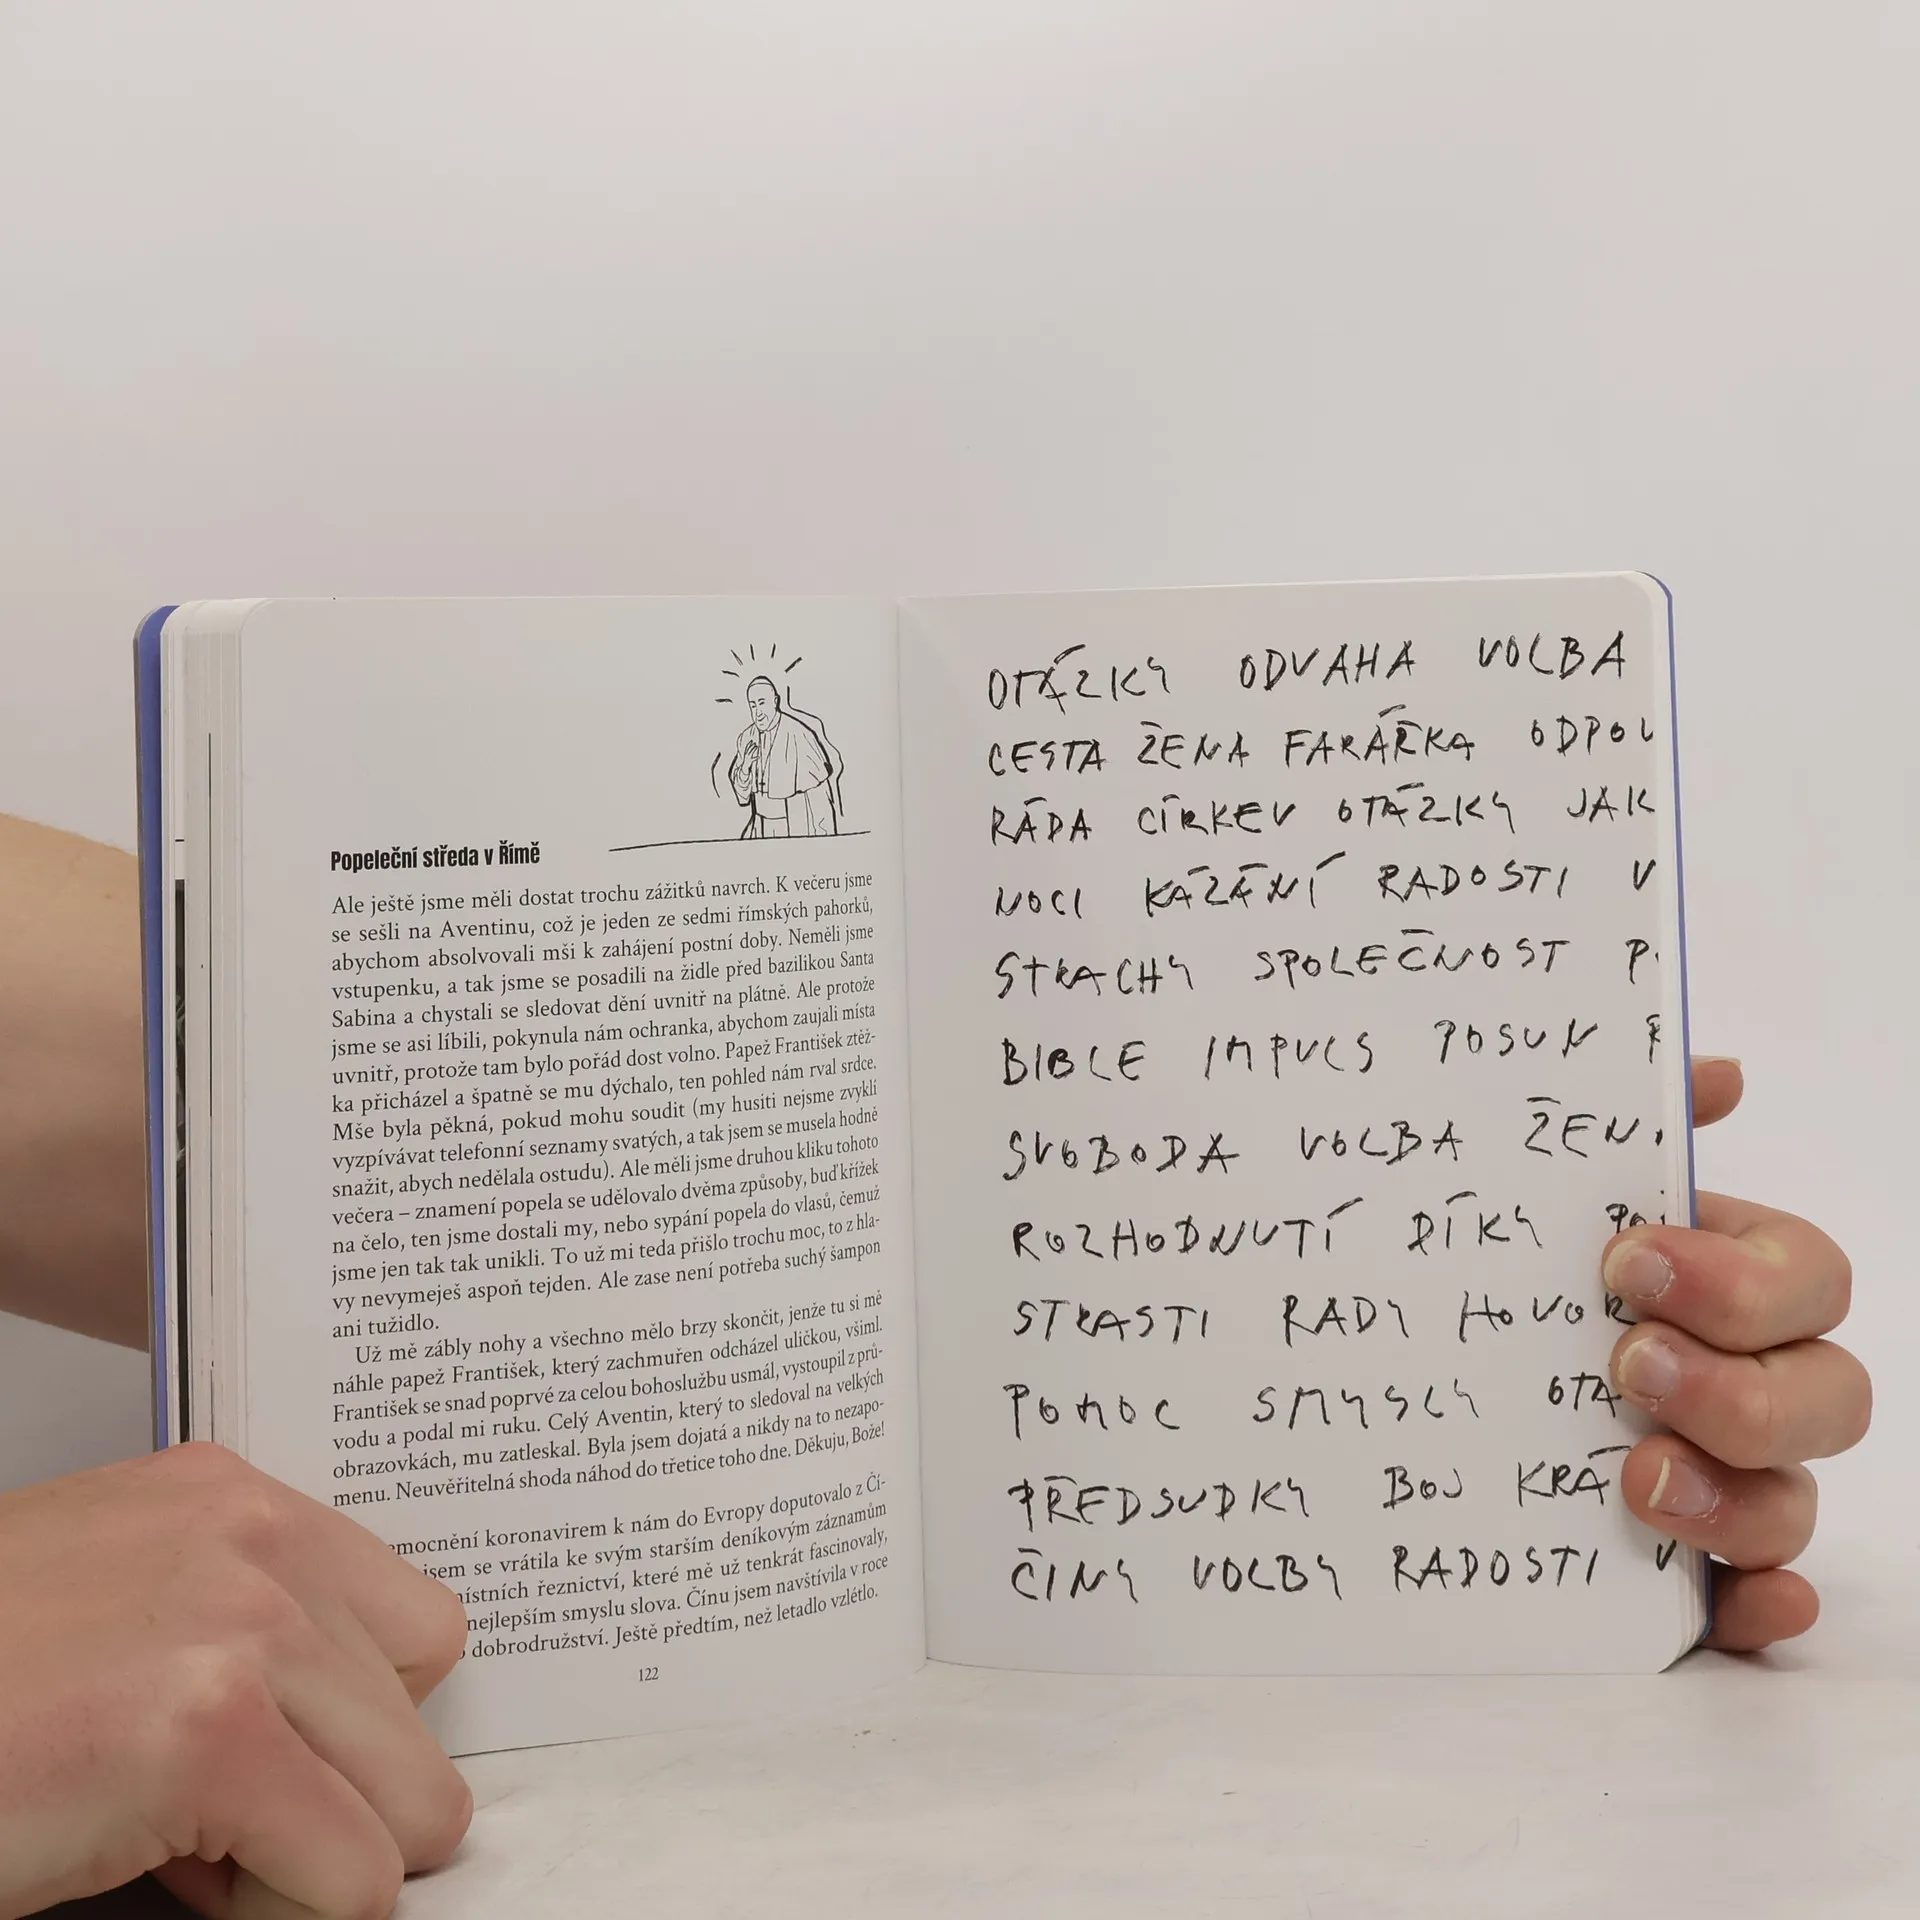 Popeleční středa v Římě
Ale ještě jsme měli dostat trochu zážitků navrch. K večeru jsme
se sešli na Aventinu, což je jeden ze sedmi římských pahorků,
abychom absolvovali mši k zahájení postní doby. Neměli jsme
vstupenku, a tak jsme se posadili na židle před bazilikou Santa
Sabina a chystali se sledovat dění uvnitř na plátně. Ale protože
jsme se asi líbili, pokynula nám ochranka, abychom zaujali místa
uvnitř, protože tam bylo pořád dost volno. Papež František ztěž-
ka přicházel a špatně se mu dýchalo, ten pohled nám rval srdce.
Mše byla pěkná, pokud mohu soudit (my husiti nejsme zvyklí
vyzpívávat telefonní seznamy svatých, a tak jsem se musela hodně
snažit, abych nedělala ostudu). Ale měli jsme druhou kliku tohoto
večera – znamení popela se udělovalo dvěma způsoby, buď křížek
na čelo, ten jsme dostali my, nebo sypání popela do vlasů, čemuž
jsme jen tak tak unikli. To už mi teda přišlo trochu moc, to z hla-
vy nevymeješ aspoň tejden. Ale zase není potřeba suchý šampon
ani tužidlo.
Už mě zábly nohy a všechno mělo brzy skončit, jenže tu si mě
náhle papež František, který zachmuřen odcházel uličkou, všiml.
František se snad poprvé za celou bohoslužbu usmál, vystoupil z prů-
vodu a podal mi ruku. Celý Aventin, který to sledoval na velkých
obrazovkách, mu zatleskal. Byla jsem dojatá a nikdy na to nezapo-
menu. Neuvěřitelná shoda náhod do třetice toho dne. Děkuju, Bože!
emocnění koronavirem k nám do Evropy doputovalo z Čí-
jsem se vrátila ke svým starším deníkovým záznamům
místních řeznictví, které mě už tenkrát fascinovaly,
nejlepším smyslu slova. Čínu jsem navštívila v roce
dobrodružství. Ještě předtím, než letadlo vzlétlo.
122
OTÁZKY ODVAHA VOLBA
CESTA ŽENA FARÁŘKA ODPOV
RÁDA CÍRKEV OTÁZKY JAK
NOCI KÁZÁNÍ RADOSTI V
STRACHY SPOLEČNOST P
BIBLE IMPULS POSUN
SVOBODA VOLBA ŽEN
ROZHODNUTÍ DÍKY
STRASTI RADY HOVOR
POMOC SMYSLY OTA
PŘEDSUDKY BOJ KRÁ
ČINY VOLBY RADOSTI V